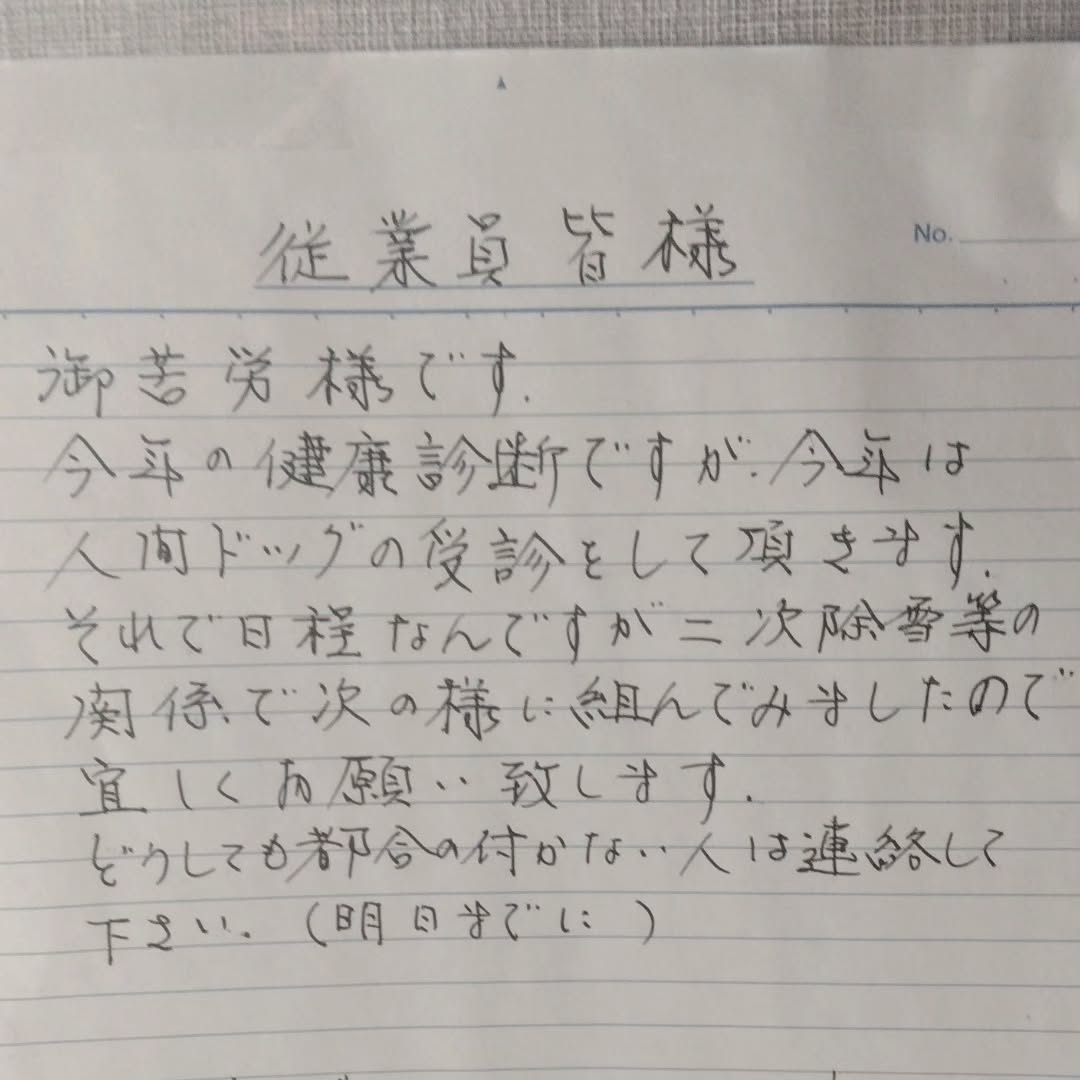 No.
従業員皆様
御苦労様です.
今年の健康診断ですが.今年は
人間ドッグの受診をして頂きます.
それで日程なんですが二次除雪等の
関係で次の様に組んでみましたので
宜しくお願い致します.
どうしても都合の付かない人は連絡して
下さい.(明日までに)